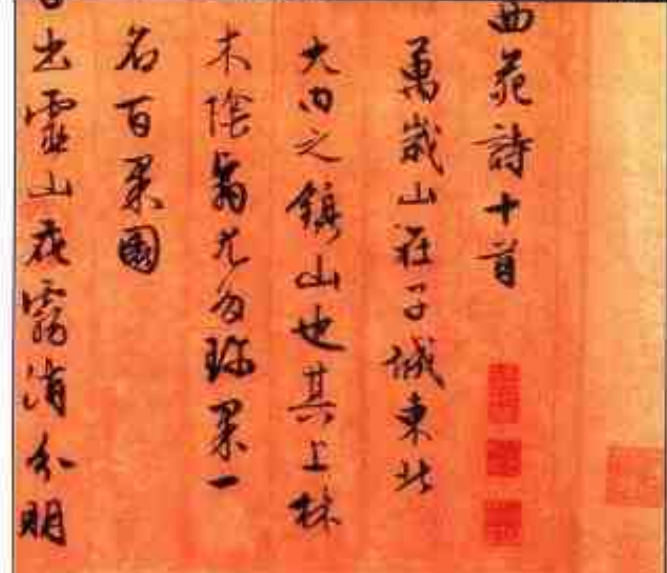 西苑詩十首
萬歲山在子城東北
大內之鎮山也其上林
木陰翳尤多珎果一
名百果園
日出靈山花霧消分明